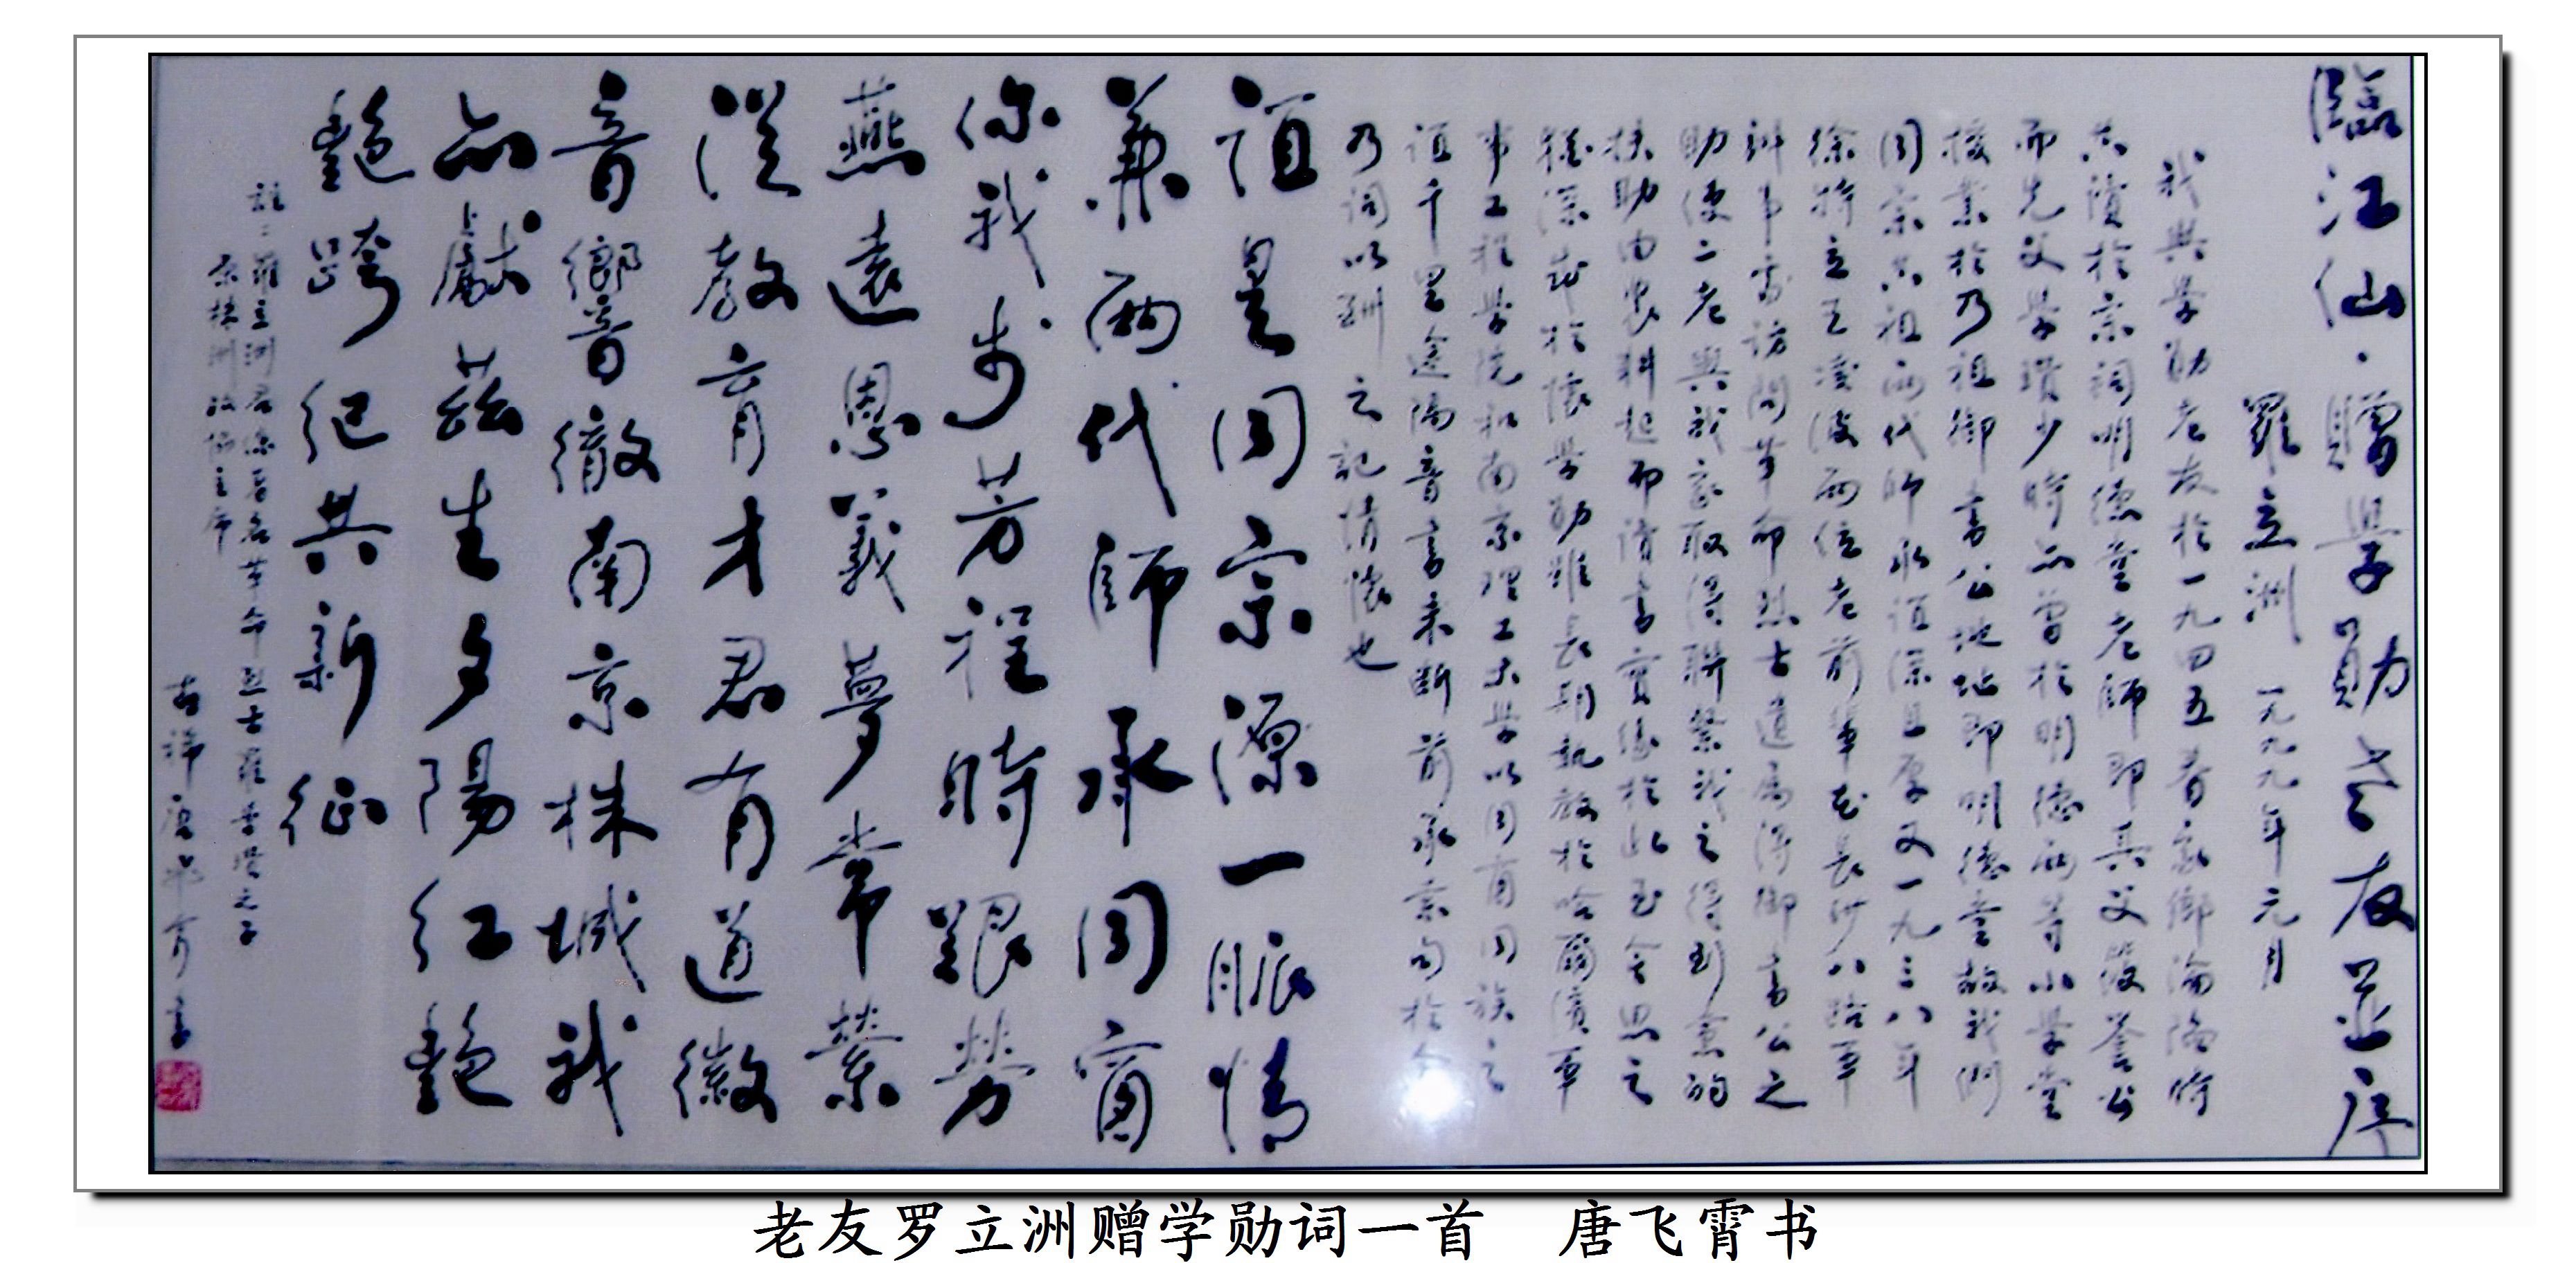 臨江仙·贈學勛老友並序
羅立洲 一九九九年元月
我與學勛老友於一九四五春家鄉淪陷時
共讀於宗祠明德堂老師即其父公
而先父學瓚少時亦曾於明德兩等小學堂
接業於乃祖御書公地址即明德堂故我們
同宗共祖兩代師承誼深且厚又一九三八年
徐特立王凌波兩位老前輩在長沙八路軍
辦事處訪問革命烈士遺屬得御書公之
助使二老與我家取得聯繫我之得到京的
扶助由裳料起而清書實緣於此玉舍思之
猶深於懷學勛雖長期執教於哈爾濱軍
事工程學院和南京理工大學以同窗同族之
誼千里途隔音書未斷前承京向於今
乃詞以酬之記情懷也
誼是同宗源一脈情
兼兩代師承同窗
你我步芳程時艱勞
燕遠恩義夢常縈
從教育才君有道徽
音鄉音徹南京株城我
亦獻茲生夕陽紅艷
艷跨紀共新征
註：羅立洲君係著名革命烈士羅學瓚之子
原株洲政協主席
古稀唐飛霄書
老友罗立洲赠学勋词一首 唐飞霄书